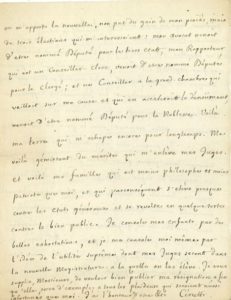 on m'apporta la nouvelle, non pas du gain de mon procès, mais
de trois élections qui m'intéressaient : mon Avocat venait
d'être nommé Député pour le tiers état ; mon Rapporteur
qui est un Conseiller clerc, venait d'être nommé Député
pour le Clergé ; et un Conseiller de grand chambre qui
veillait sur ma cause et qui en accélérait le dénouement
venait d'être nommé Député pour la Noblesse. Voilà
ma terre qui m'échappe encore pour longtemps. Me
voilà gémissant du mérite qui m'enlève mes Juges.
et voilà ma famille qui est moins philosophe et moins
patriote que moi, et qui s'élève presque
contre les états généraux et se révolte en quelque sorte
contre le bien public. Je console mes enfants par de
belles exhortations, et je me console moi même par
l'idée de l'utilité suprême dont mes Juges seront dans
la nouvelle Magistrature à laquelle on les élève. Je vous
supplie, Messieurs, de vouloir bien publier ma résignation, afin
qu'elle serve d'exemple à tous les plaideurs qui seraient moins
que moi. J'ai l'honneur d'être Cerutti